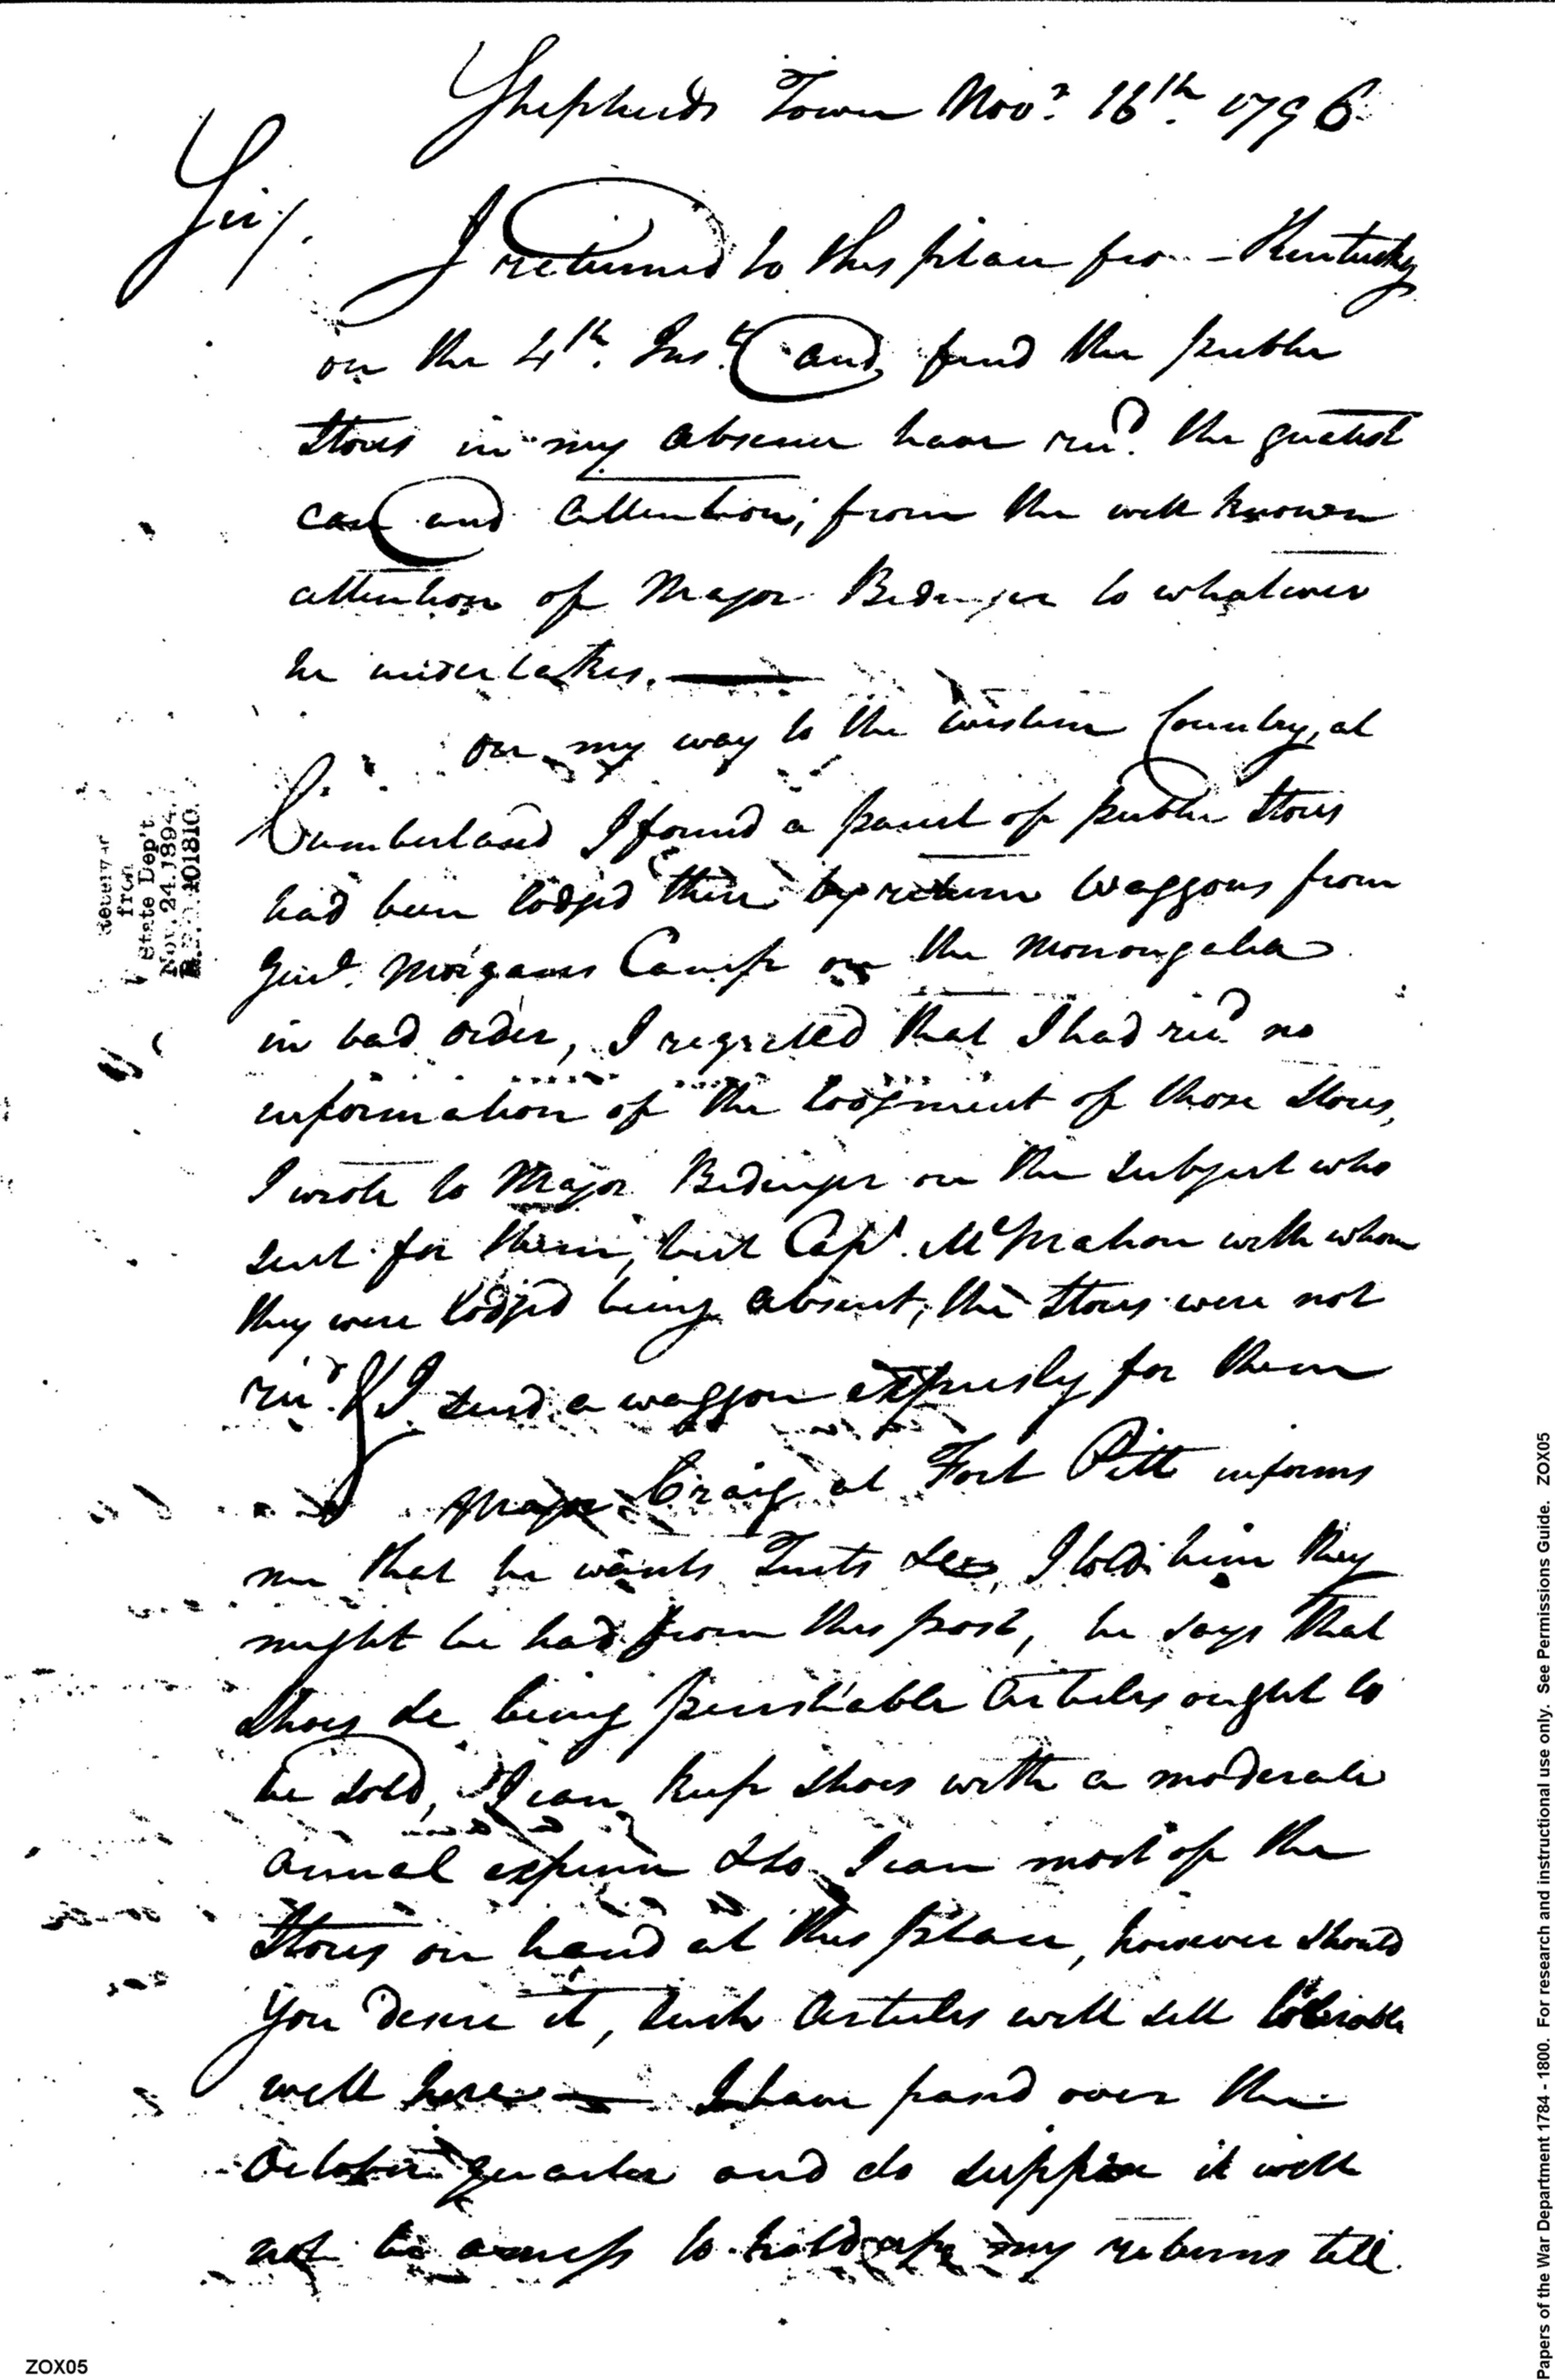 Shepherds Town Novr. 16th. 1796
Sir/.
I returned to this place fro - Kentucky
on the 4th. Inst. and found the public
Stores in my absence have recd. the greatest
care and attention; from the well known
attention of Major Bedinger to whatever
he undertakes.
On my way to the western Country, at
Cumberland I found a parcel of public Stores
had been lodged there by return Waggons from
Genl. Morgans Camp on the Monongalia
in bad order, I regretted that I had recd no
information of the lodgment of those Stores,
I wrote to Major Bedinger on the Subject who
sent for them, but Capt. McMahon with whom
they were lodged being absent, the Stores were not
recd. I send a waggon expressly for them
Major Craig at Fort Pitt informs
me that he wants Tents &c, I told him they
might be had from this post, he says that
Shoes &c being perishable Articles ought to
be sold, I can keep Shoes with a moderate
annual expence & so I can most of the
Stores on hand at this place, however should
you desire it, such Articles will sell tolerable
well here — I have passd over the
October quarter and do suppose it will
not be amiss to hold up my returns till
Received
from
State Dep't
Nov. 24. 1894.
101810.
Papers of the War Department 1784 - 1800. For research and instructional use only. See Permissions Guide. ZOX05
ZOX05